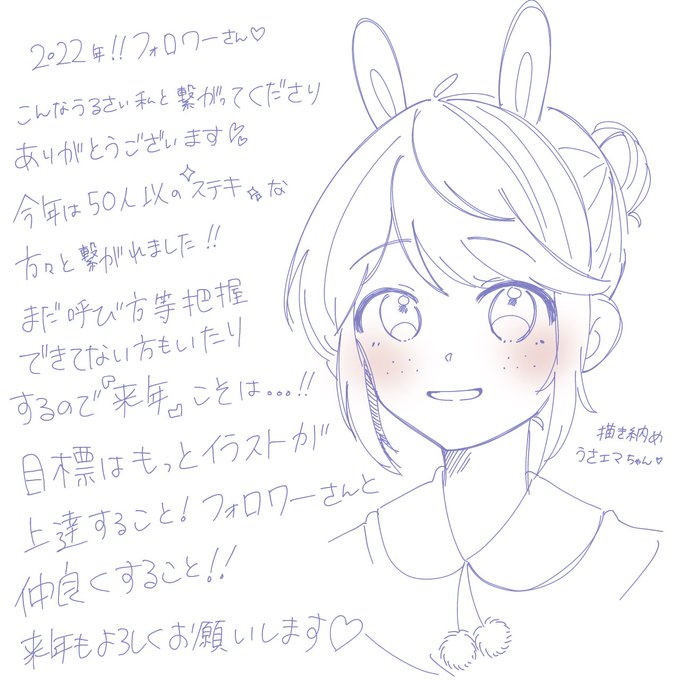 2022年!!フォロワーさん♡
こんなうるさい私と繋がってくださり
ありがとうございます♡
今年は50人以のステキな
方々と繋がれました!!
まだ呼び方等把握
できてない方もいたり
するので『来年』ことは…!!
目標はもっとイラストが
上達すること!フォロワーさんと
仲良くすること!!
来年もよろしくお願いします♡
描き納め
うさエマちゃん♡